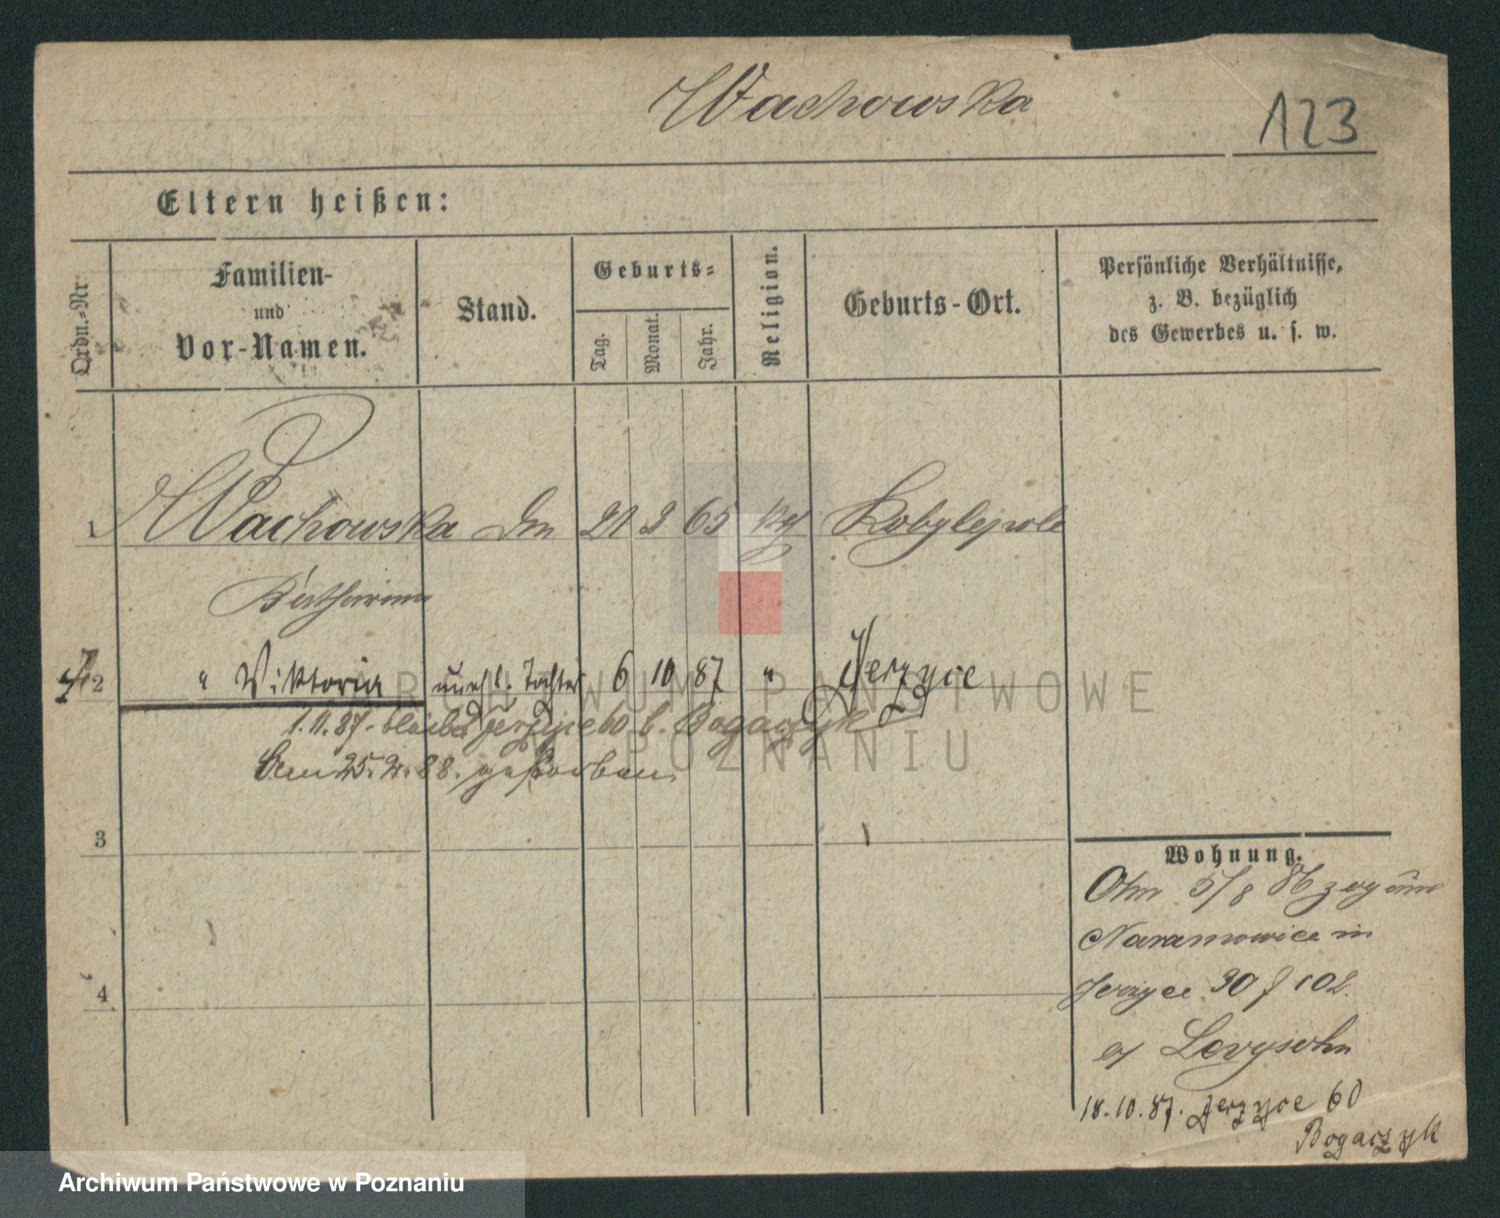 Wachowska
123
Eltern heißen:
Ordn.-Nr.
Familien-
und
Vor-Namen.
Stand.
Geburts-
Tag.
Monat.
Jahr.
Religion.
Geburts-Ort.
Persönliche Verhältnisse,
z. B. bezüglich
des Gewerbes u. s. w.
1 Wachowska 21 2 65 Kobylepole
Katharina
2 " Viktoria unehl. Tochter 6 10 87 " Jerzyce
1.11.87. bleibt Jerzyce 60 b. Bogaczyk
Am 25.2.88. gestorben.
3
4
Wohnung.
5/8
Naramowice in
Jerzyce 30 f 102.
Levysohn
18.10.87. Jerzyce 60
Bogaczyk
ARCHIWUM PAŃSTWOWE
POZNANIU
Archiwum Państwowe w Poznaniu